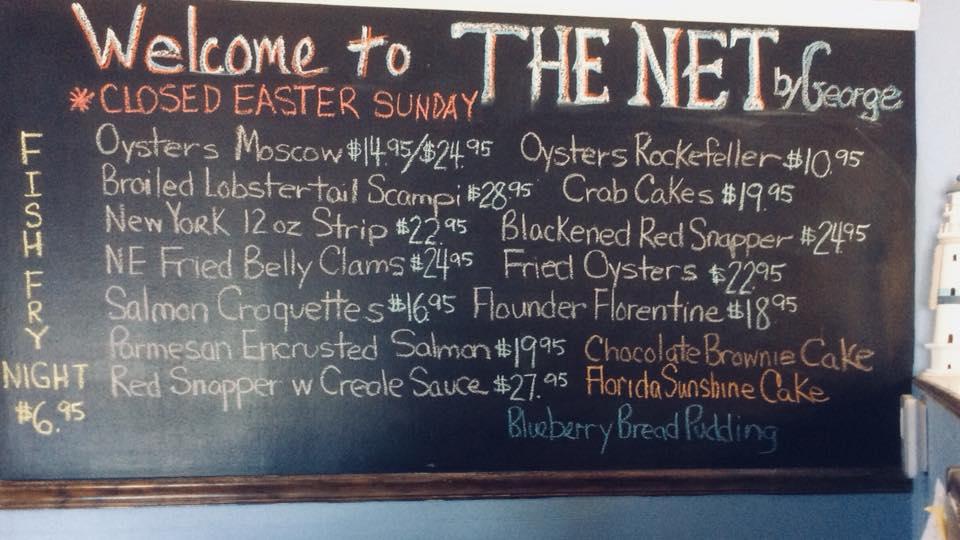 Welcome to THE NET by George
*CLOSED EASTER SUNDAY
FISH FRY
NIGHT
$6.95
Oysters Moscow $14.95/$24.95 Oysters Rockefeller $10.95
Broiled Lobstertail Scampi $28.95 Crab Cakes $19.95
New York 12 oz Strip $22.95 Blackened Red Snapper $24.95
NE Fried Belly Clams $24.95 Fried Oysters $22.95
Salmon Croquettes $16.95 Flounder Florentine $18.95
Parmesan Encrusted Salmon $19.95 Chocolate Brownie Cake
Red Snapper w Creole Sauce $27.95 Florida Sunshine Cake
Blueberry Bread Pudding